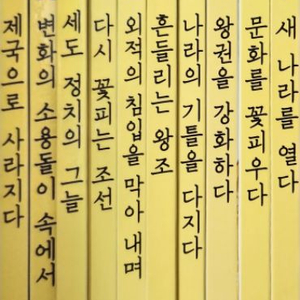 새 나라를 열다
문화를 꽃피우다
왕권을 강화하다
나라의 기틀을 다지다
흔들리는 왕조
외적의 침입을 막아 내며
다시 꽃피는 조선
세도 정치의 그늘
변화의 소용돌이 속에서
제국으로 사라지다